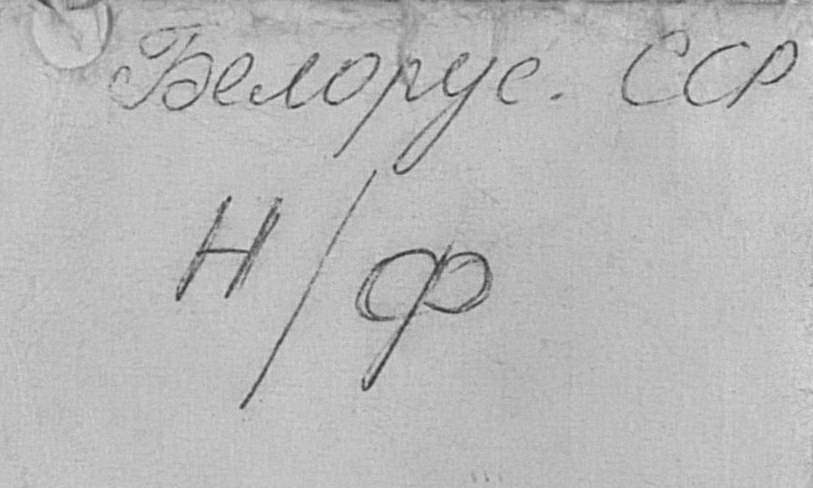 Белорус. ССР
Н/Ф